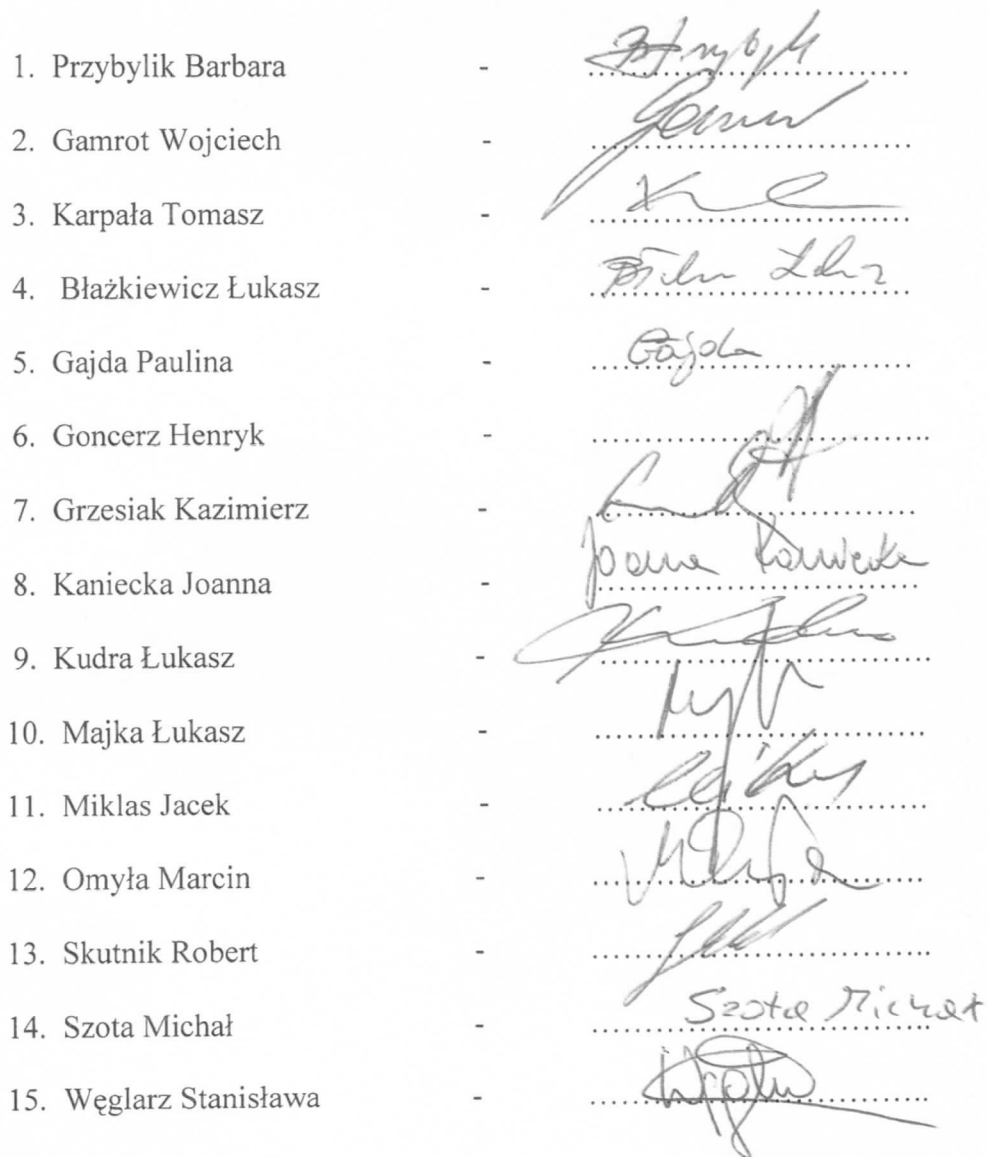 1. Przybylik Barbara - ........................................
2. Gamrot Wojciech - ........................................
3. Karpała Tomasz - ........................................
4. Błażkiewicz Łukasz - ........................................
5. Gajda Paulina - Gajda
6. Goncerz Henryk - ........................................
7. Grzesiak Kazimierz - ........................................
8. Kaniecka Joanna - Joanna Kaniecka
9. Kudra Łukasz - ........................................
10. Majka Łukasz - ........................................
11. Miklas Jacek - ........................................
12. Omyła Marcin - ........................................
13. Skutnik Robert - ........................................
14. Szota Michał - Szota Michał
15. Węglarz Stanisława - ........................................